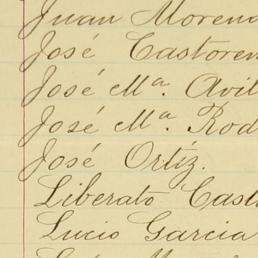 Juan Moreno
José Castoren
José Mª. Avil
José Mª. Rod
José Ortíz.
Liberato Cast
Lucio Garcia